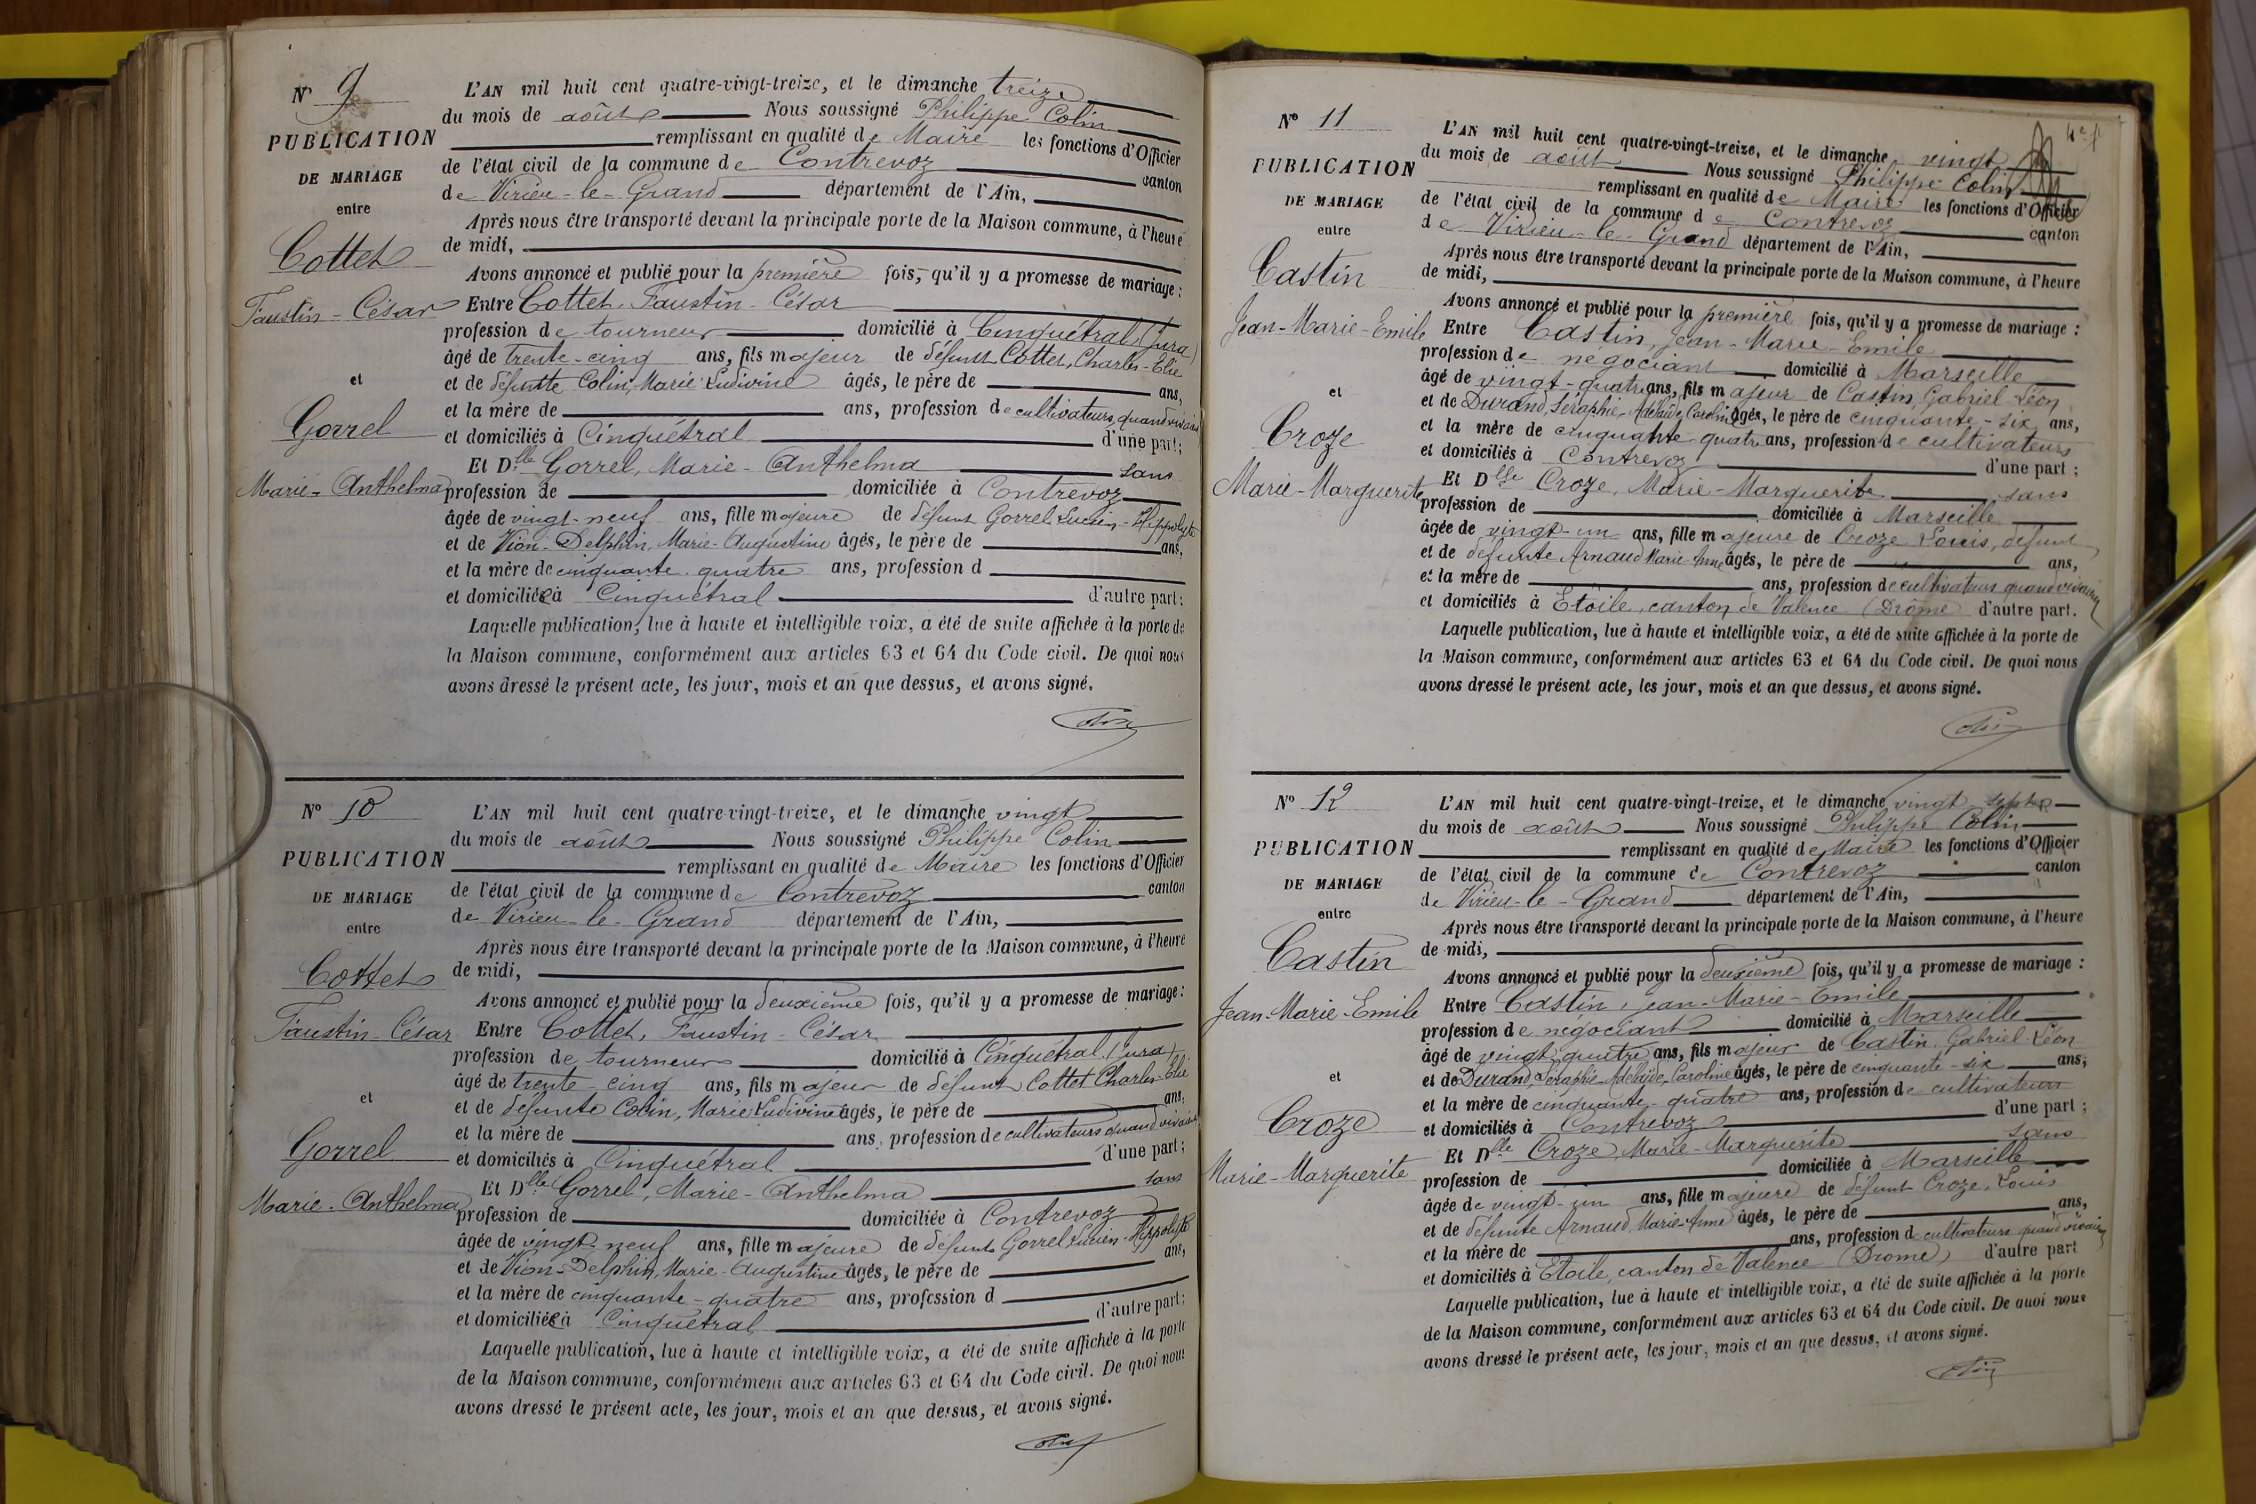 N° 9
PUBLICATION
DE MARIAGE
entre
Cottet
Faustin-César
et
Gorrel
Marie-Anthelma
L'AN mil huit cent quatre-vingt-treize, et le dimanche treize
du mois de août Nous soussigné Philippe Colin
remplissant en qualité de Maire les fonctions d'Officier
de l'état civil de la commune de Contrevoz canton
de Virieu-le-Grand département de l'Ain,
Après nous être transporté devant la principale porte de la Maison commune, à l'heure
de midi,
Avons annoncé et publié pour la première fois, qu'il y a promesse de mariage :
Entre Cottet, Faustin-César
profession de tourneur domicilié à Cinquétral (Jura)
âgé de trente-cinq ans, fils majeur de défunt Cottet, Charles-Elie
et de défunte Colin, Marie Ludivine âgés, le père de ans,
et la mère de ans, profession de cultivateurs quand vivaient
et domiciliés à Cinquétral d'une part;
Et Dlle Gorrel, Marie-Anthelma sans
profession de domiciliée à Contrevoz
âgée de vingt-neuf ans, fille majeure de défunt Gorrel Lucien-Hippolyte
et de Vion-Delphin, Marie-Augustine âgés, le père de ans,
et la mère de cinquante-quatre ans, profession d
et domiciliée à Cinquétral d'autre part;
Laquelle publication, lue à haute et intelligible voix, a été de suite affichée à la porte de
la Maison commune, conformément aux articles 63 et 64 du Code civil. De quoi nous
avons dressé le présent acte, les jour, mois et an que dessus, et avons signé.
Colin
N° 10
PUBLICATION
DE MARIAGE
entre
Cottet
Faustin-César
et
Gorrel
Marie-Anthelma
L'AN mil huit cent quatre-vingt-treize, et le dimanche vingt
du mois de août Nous soussigné Philippe Colin
remplissant en qualité de Maire les fonctions d'Officier
de l'état civil de la commune de Contrevoz canton
de Virieu-le-Grand département de l'Ain,
Après nous être transporté devant la principale porte de la Maison commune, à l'heure
de midi,
Avons annoncé et publié pour la deuxième fois, qu'il y a promesse de mariage :
Entre Cottet, Faustin-César
profession de tourneur domicilié à Cinquétral (Jura)
âgé de trente-cinq ans, fils majeur de défunt Cottet Charles-Elie
et de défunte Colin, Marie Ludivine âgés, le père de ans,
et la mère de ans, profession de cultivateurs quand vivaient
et domiciliés à Cinquétral d'une part;
Et Dlle Gorrel, Marie-Anthelma sans
profession de domiciliée à Contrevoz
âgée de vingt-neuf ans, fille majeure de défunt Gorrel Lucien-Hippolyte
et de Vion-Delphin, Marie-Augustine âgés, le père de ans,
et la mère de cinquante-quatre ans, profession d
et domiciliée à Cinquétral d'autre part;
Laquelle publication, lue à haute et intelligible voix, a été de suite affichée à la porte
de la Maison commune, conformément aux articles 63 et 64 du Code civil. De quoi nous
avons dressé le présent acte, les jour, mois et an que dessus, et avons signé.
Colin
N° 11
PUBLICATION
DE MARIAGE
entre
Castin
Jean-Marie-Emile
et
Croze
Marie-Marguerite
L'AN mil huit cent quatre-vingt-treize, et le dimanche vingt
du mois de août Nous soussigné Philippe Colin
remplissant en qualité de Maire les fonctions d'Officier
de l'état civil de la commune de Contrevoz canton
de Virieu-le-Grand département de l'Ain,
Après nous être transporté devant la principale porte de la Maison commune, à l'heure
de midi,
Avons annoncé et publié pour la première fois, qu'il y a promesse de mariage :
Entre Castin, Jean-Marie-Emile
profession de négociant domicilié à Marseille
âgé de vingt-quatre ans, fils majeur de Castin, Gabriel Léon
et de Durand, Séraphie-Adélaïde, Caroline âgés, le père de cinquante-six ans,
et la mère de cinquante quatre ans, profession de cultivateurs
et domiciliés à Contrevoz d'une part ;
Et Dlle Croze, Marie-Marguerite sans
profession de domiciliée à Marseille
âgée de vingt-un ans, fille majeure de Croze Louis, défunt
et de défunte Arnaud Marie-Anne âgés, le père de ans,
et la mère de ans, profession de cultivateurs quand vivaient
et domiciliés à Etoile, canton de Valence (Drôme) d'autre part.
Laquelle publication, lue à haute et intelligible voix, a été de suite affichée à la porte de
la Maison commune, conformément aux articles 63 et 64 du Code civil. De quoi nous
avons dressé le présent acte, les jour, mois et an que dessus, et avons signé.
Colin
N° 12
PUBLICATION
DE MARIAGE
entre
Castin
Jean-Marie-Emile
et
Croze
Marie-Marguerite
L'AN mil huit cent quatre-vingt-treize, et le dimanche vingt sept
du mois de août Nous soussigné Philippe Colin
remplissant en qualité de Maire les fonctions d'Officier
de l'état civil de la commune de Contrevoz canton
de Virieu-le-Grand département de l'Ain,
Après nous être transporté devant la principale porte de la Maison commune, à l'heure
de midi,
Avons annoncé et publié pour la deuxième fois, qu'il y a promesse de mariage :
Entre Castin, Jean-Marie-Emile
profession de négociant domicilié à Marseille
âgé de vingt quatre ans, fils majeur de Castin, Gabriel-Léon
et de Durand, Séraphie-Adélaïde-Caroline âgés, le père de cinquante-six ans,
et la mère de cinquante-quatre ans, profession de cultivateurs
et domiciliés à Contrevoz d'une part ;
Et Dlle Croze, Marie-Marguerite sans
profession de domiciliée à Marseille
âgée de vingt-un ans, fille majeure de défunt Croze, Louis
et de défunte Arnaud, Marie-Anne âgés, le père de ans,
et la mère de ans, profession de cultivateurs quand vivaient
et domiciliés à Etoile, canton de Valence (Drome) d'autre part
Laquelle publication, lue à haute et intelligible voix, a été de suite affichée à la porte
de la Maison commune, conformément aux articles 63 et 64 du Code civil. De quoi nous
avons dressé le présent acte, les jour, mois et an que dessus, et avons signé.
Colin